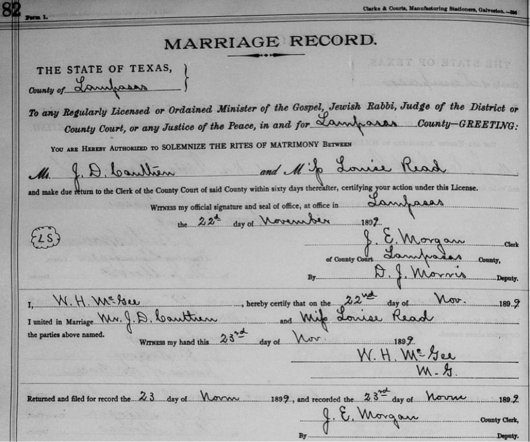 82
Form 1.
Clarke & Courts, Manufacturing Stationers, Galveston.
MARRIAGE RECORD.
THE STATE OF TEXAS,
County of Lampasas
To any Regularly Licensed or Ordained Minister of the Gospel, Jewish Rabbi, Judge of the District or
County Court, or any Justice of the Peace, in and for Lampasas County—GREETING:
YOU ARE HEREBY AUTHORIZED TO SOLEMNIZE THE RITES OF MATRIMONY BETWEEN
Mr. J. D. Cauthen and Miss Louise Read
and make due return to the Clerk of the County Court of said County within sixty days thereafter, certifying your action under this License.
WITNESS my official signature and seal of office, at office in Lampasas
the 22d day of November 1899.
LS
J. E. Morgan Clerk
of County Court Lampasas County,
By D. J. Morris Deputy.
I, W. H. McGee, hereby certify that on the 22nd day of Nov. 1899
I united in Marriage Mr. J. D. Cauthen and Miss Louise Read
the parties above named.
WITNESS my hand this 23rd day of Nov. 1899.
W. H. McGee
M. G.
Returned and filed for record the 23 day of Novm 1899, and recorded the 23rd day of Novm 1899.
J. E. Morgan County Clerk,
By Deputy.